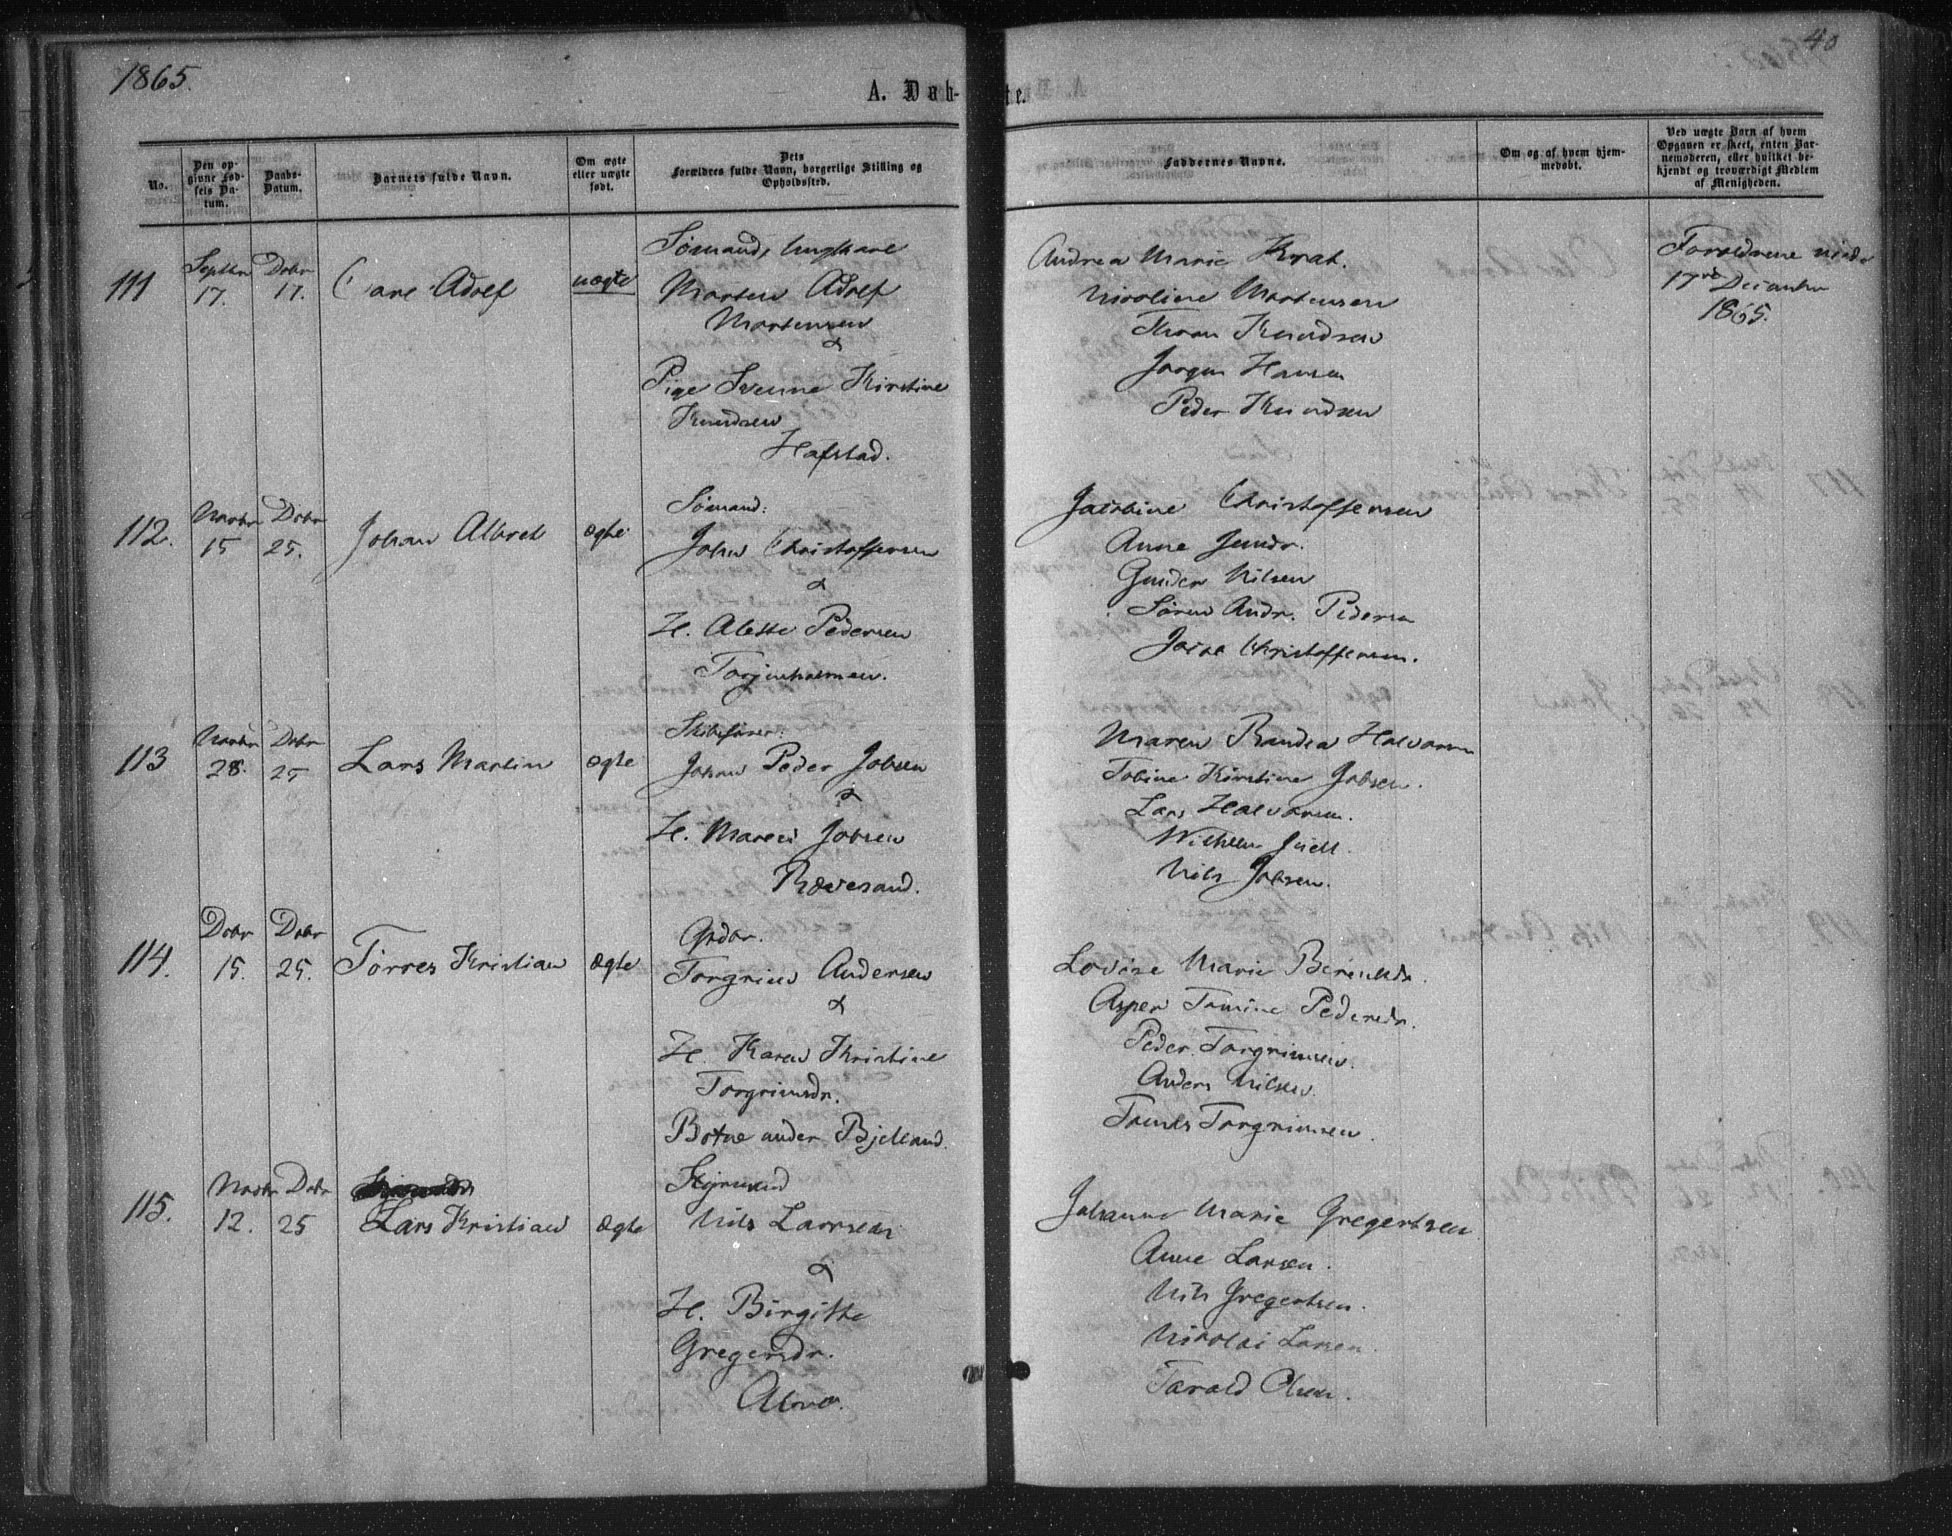 1865.
40
A. Døb-
te.
No.
Den op-
givne Fød-
sels Da-
tum.
Daabs-
Datum.
Barnets fulde Navn.
Om ægte
eller uægte
født.
Dets
Forældres fulde Navn, borgerlige Stilling og
Opholdssted.
Faddernes Navne.
Om og af hvem hjem-
medøbt.
Ved uægte Barn af hvem
Opgaven er skeet, enten Bar-
nemoderen, eller hvilket be-
kjendt og troværdigt Medlem
af Menigheden.
111
Septbr
17.
Dcbr
17.
Carl Adolf
uægte
Sømand, Ungkarl
Morten Adolf
Mortensen
&
Pige Kirstine
Knudsen
Hafstad.
Andrea Marie
Nicoline Mortensen
Knudsen
Jørgen Hansen
Peder Knudsen
Forældrene
17de December
1865.
112.
Novbr
15
Dcbr
25.
Johan Albret
ægte
Sømand:
John Christoffersen
&
H. Alette Pedersen
Torjusholmen.
Jacobine Christoffersen
Anne Gundr.
Gunder Nilsen
Søren Andr. Pedersen
Christoffersen.
113
Novbr
28.
Dcbr
25
Lars Martin
ægte
Skibsfører:
Johan Peder Jobsen
&
H. Maren Jobsen
Rævesand.
Maren Halvorsen
Tobine Kirstine Jobsen.
Lars Halvorsen.
Wilhelm Juell.
Nils Jobsen.
114.
Dcbr
15.
Dcbr
25.
Tørres Kristian
ægte
Grdbr.
Torgrim Andersen
&
H. Karen Kristine
Torgrimsdr.
under Bjelland.
Lovise Marie Berentsdr.
Tomine Pedersdr.
Peder Torgrimsen.
Anders Nilsen.
Torgrimsen.
115.
Novbr
12.
Dcbr
25
Lars Kristian
ægte
Styrmand
Nils Larsen
&
H. Birgitte
Gregersdr.
Alve.
Johanne Marie Gregertsen
Anne Larsen.
Nils Gregertsen.
Nikolai Larsen.
Tarald Olsen.